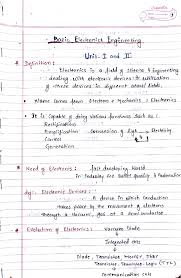 Basic Electronics Engineering
Unit - I and II
* Definition :
Electronics is a field of science & Engineering
dealing with electronic devices & utilization
of these devices in different fields.
* Name comes from Electron + Mechanics = Electronics
* It is Capable of doing various functions such as :
Rectification
Amplification Conversion of light → Electricity
Control
Generation
* Need of Electronics : fast developing World
in Industry for better quality & automation
def: Electronic Devices :
A device in which conduction
takes place by the movement of electrons
through a vacuum, gas or a semi-conductor.
* Evolution of Electronics : Vacuum Diode
↓
Integrated ckts
↓
Diode, Transistor, MOSFET,
Transistor, Transistor-Logic (TTL)
↓
Communication ckts